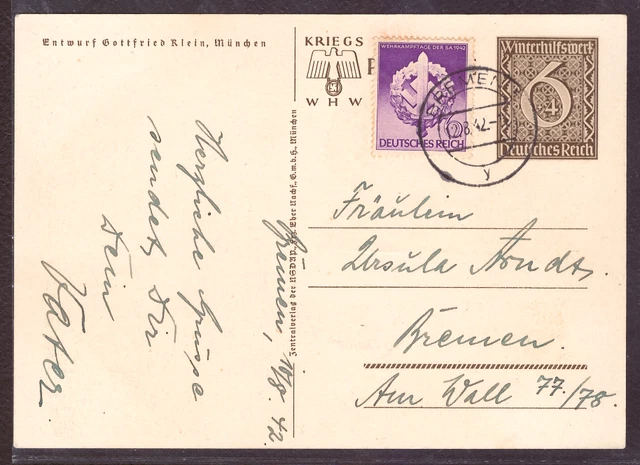 Entwurf Gottfried Klein, München
KRIEGS
WHW
WEHRKAMPFTAGE DER SA 1942
DEUTSCHES REICH
Winterhilfswerk
6
+4
Deutsches Reich
BREMEN
8.42.-
y
Zentralverlag der NSDAP., Frz. Eher Nachf. G.m.b.H., München
Bremen, 10/8. 42.
Herzliche Grüsse
sendet Dir
Dein
Vater.
Fräulein
Ursula Arndt.
Bremen.
Am Wall 77./78.